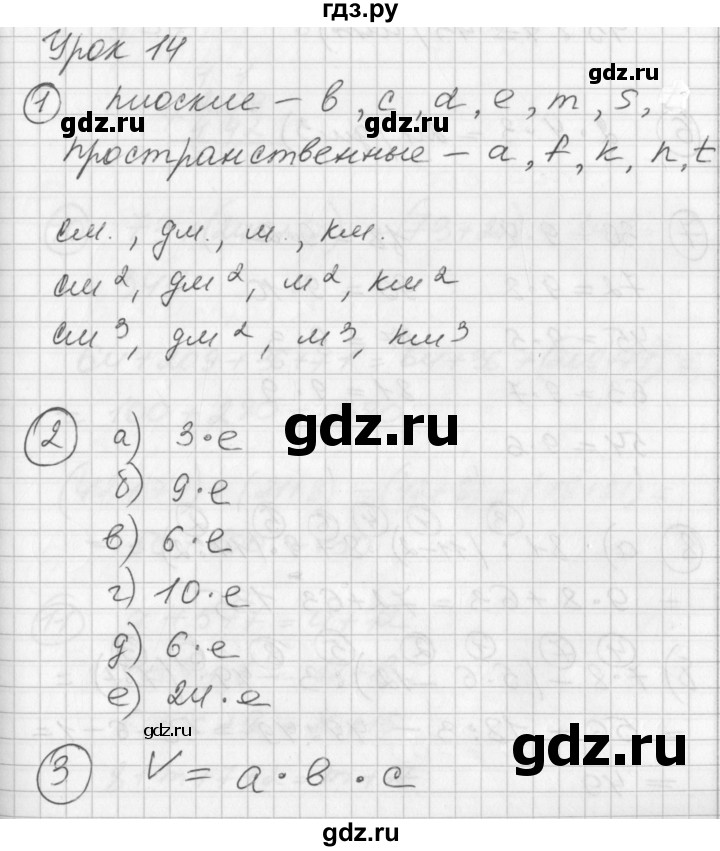 гдз.ру
Урок 14
1 плоские – в, c, d, e, m, s,
gdz.ru gdz.ru
пространственные – a, f, k, n, t
см., дм., м., км.
см², дм², м², км²
см³, дм², м³, км³
gdz.ru
2 а) 3·e
б) 9·e
в) 6·e
г) 10·e
д) 6·e
е) 24·e
gdz.ru
gdz.ru
3 V = a·в·c
gdz.ru